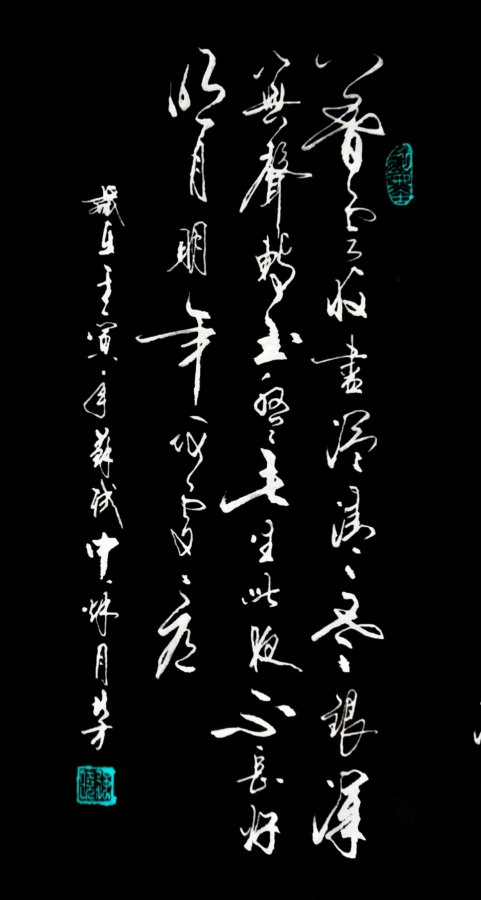 暮雲收盡溢清寒銀漢
無聲轉玉盤此生此夜不長好
明月明年何處看
歲在壬寅年蘇軾中秋月